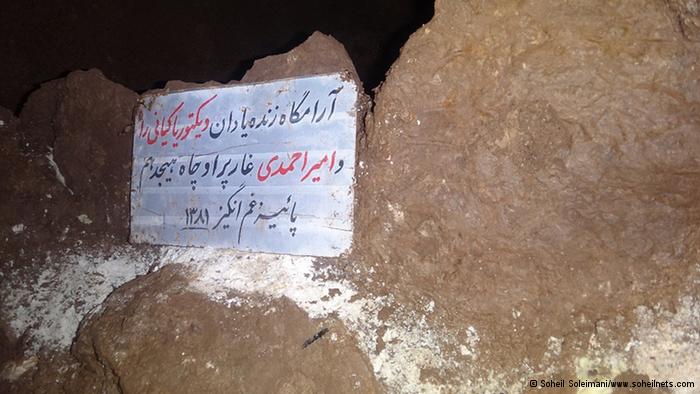 آرامگاه زنده یادان ویکتوریا کیانی راد
و امیر احمدی غار پراو چاه هیجدهم
پائیز غم انگیز ۱۳۸۱
© Soheil Soleimani/www.soheilnets.com